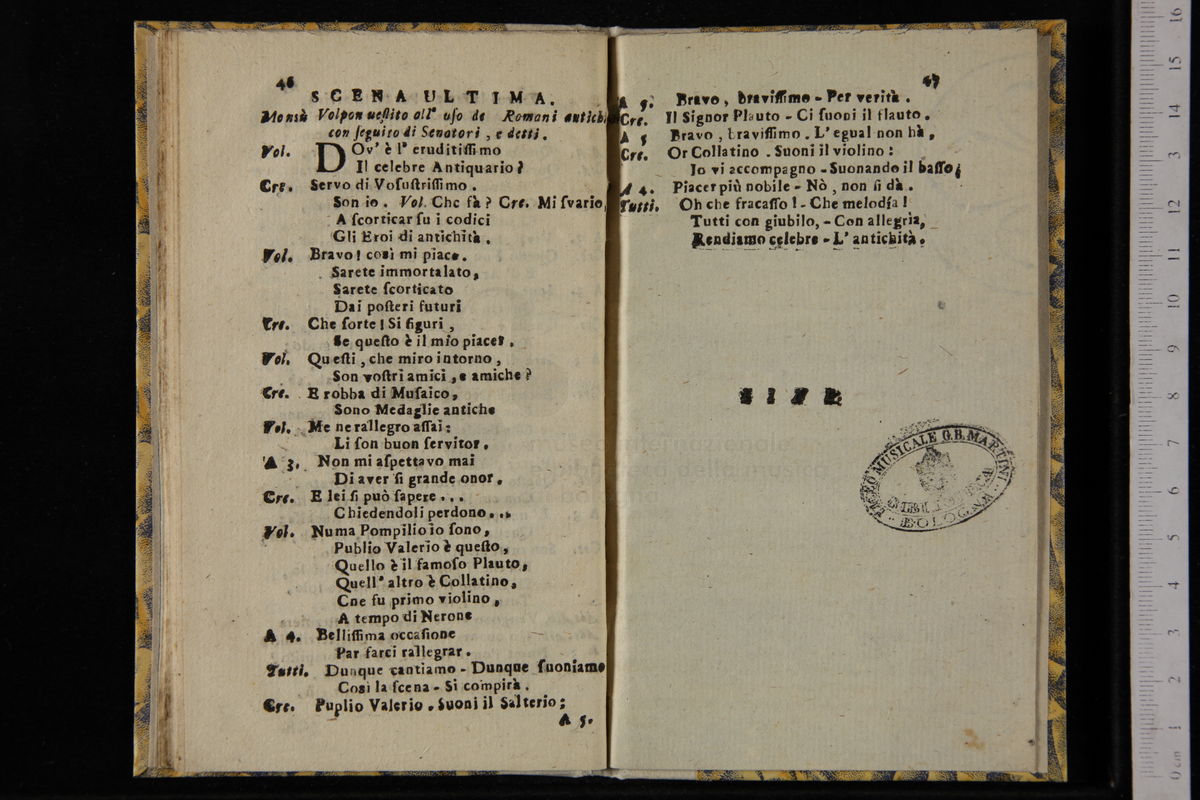 46
SCENA ULTIMA.
Monsù Volpon veſtito all' uſo de Romani antichi
con ſeguito di Senatori, e detti.
Vol. DOv' è l' eruditiſſimo
Il celebre Antiquario?
Cre. Servo di Voſuſtriſſimo.
Son io. Vol. Che fà? Cre. Mi ſvario,
A ſcorticar ſu i codici
Gli Eroi di antichità.
Vol. Bravo! così mi piace.
Sarete immortalato,
Sarete ſcorticato
Dai poſteri futuri
Cre. Che ſorte! Si figuri,
Se queſto è il mio piacer.
Vol. Queſti, che miro intorno,
Son voſtri amici, e amiche?
Cre. E robba di Muſaico,
Sono Medaglie antiche
Vol. Me ne rallegro aſſai:
Li ſon buon ſervitor.
A 3. Non mi aſpettavo mai
Di aver ſi grande onor.
Cre. E lei ſi può ſapere...
Chiedendoli perdono...
Vol. Numa Pompilio io ſono,
Publio Valerio è queſto,
Quello è il famoſo Plauto,
Quell' altro è Collatino,
Cne fu primo violino,
A tempo di Nerone
A 4. Belliſſima occaſione
Par farci rallegrar.
Tutti. Dunque cantiamo - Dunque ſuoniamo
Così la ſcena - Si compirà.
Cre. Puplio Valerio. Suoni il Salterio;
A 5.
47
A 5. Bravo, braviſſimo - Per verità.
Cre. Il Signor Plauto - Ci ſuoni il flauto.
A 5 Bravo, braviſſimo. L' egual non hà,
Cre. Or Collatino. Suoni il violino:
Io vi accompagno - Suonando il baſſo;
A 4. Piacer più nobile - Nò, non ſi dà.
Tutti. Oh che fracaſſo! - Che melodía!
Tutti con giubilo, - Con allegria,
Rendiamo celebre - L' antichità.
FINE
LICEO MUSICALE G.B. MARTINI
BOLOGNA